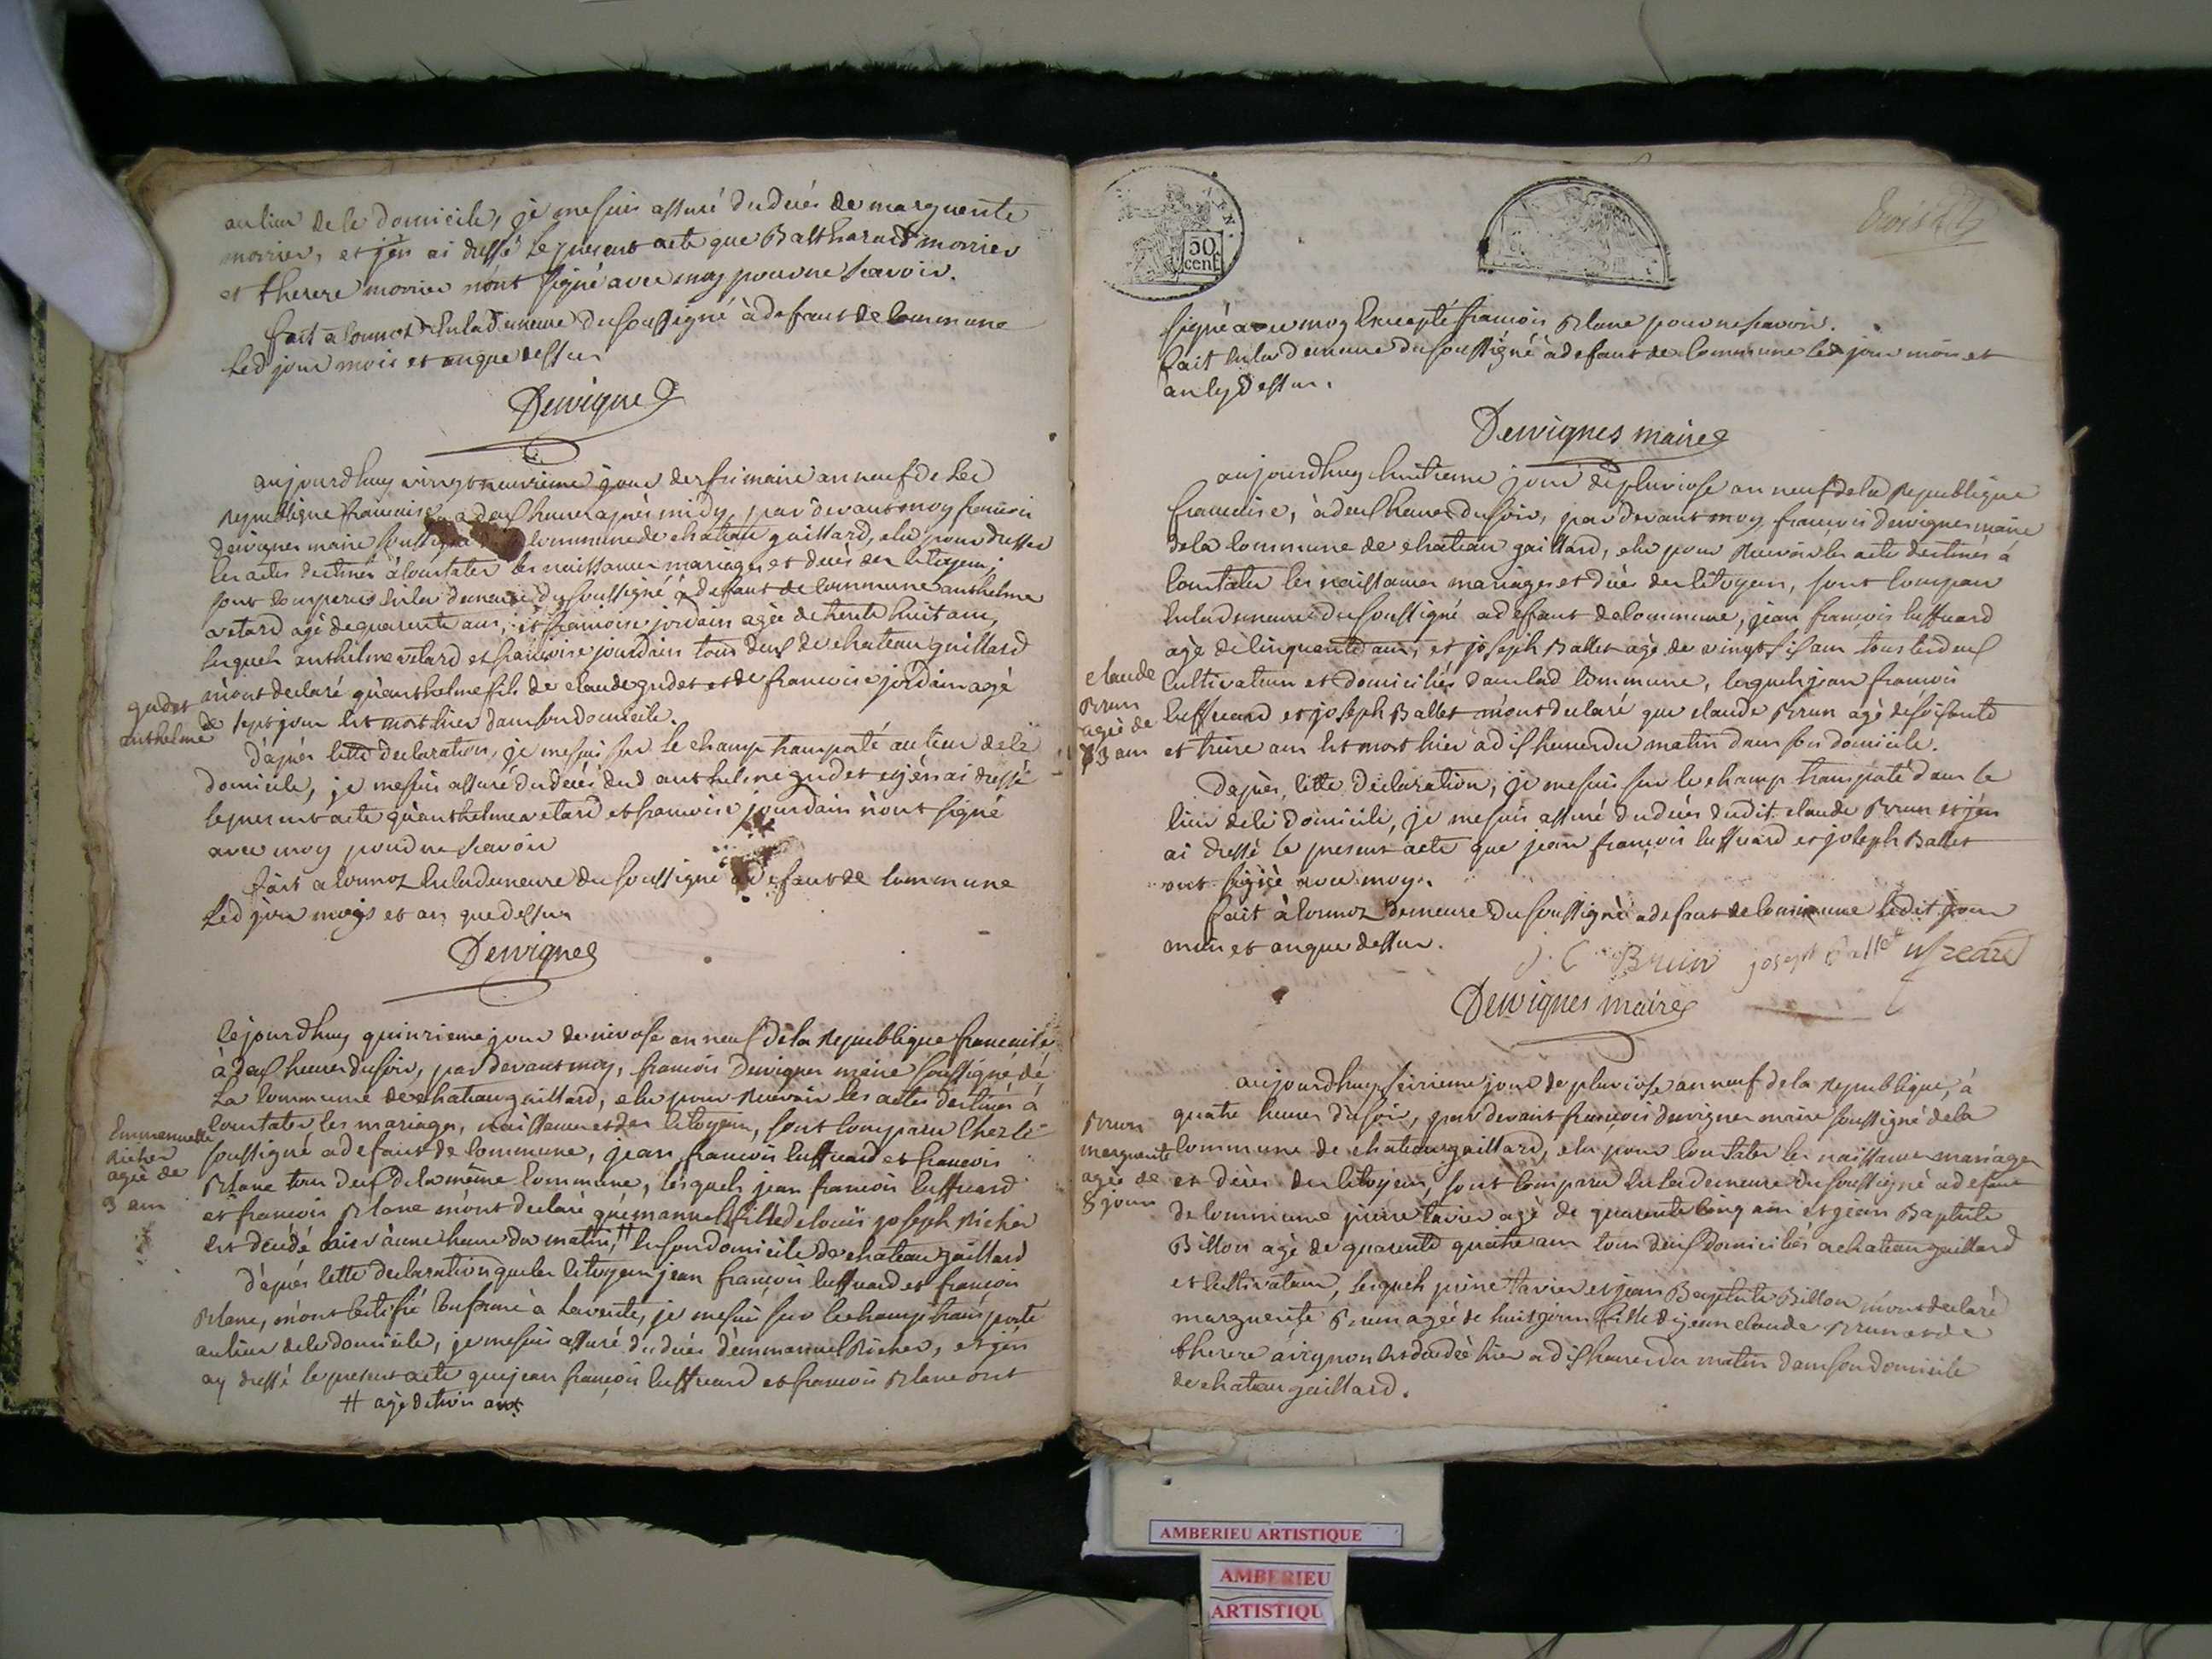 au lieu de le domicile, je me suis assuré du deces de marguerite
morrier, et j'en ai dressé le present acte que Balthazard morrier
et therese morrier n'ont signé avec moy pour ne scavoir.
fait a cormoz en la demeure du soussigné à defaut de commune
led jour mois et an que dessus
Dervignes
aujourdhuy vingt neuvieme jour de frimaire an neuf de la
republique francaise a deux heures après midy, par devant moy francois
dervignes maire soussigné commune de chateau gaillard, elu pour dresser
les actes destinés à constater les naissances mariages et deces des citoyens,
sont comparus en la demeure du soussigné à defaut de commune anthelme
vetard agé de quarente ans, et francoise jordain agée de trente huit ans,
lesquels anthelme vetard et francoise jourdain tous deux de chateau gaillard
m'ont declaré qu'anthelme fils de claude gudet et de francoise jordain agé
gudet
anthelme
de sept jour est mort hier dans son domicile.
d'apres cette declaration, je me suis sur le champ transporté au lieu de le
domicile, je me suis assuré du deces dud anthelme gudet et j'en ai dressé
le present acte qu'anthelme vetard et francoise jourdain n'ont signé
avec moy pour ne scavoir
fait a cormoz en la demeure du soussigné a defaut de commune
led jour mois et an que dessus
Dervignes
cejourdhuy quinzieme jour de nivose an neuf de la republique francaise
à deux heures du soir, par devant moy, francois Dervignes maire soussigné de
la commune de chateau gaillard, elu pour recevoir les actes destinés à
constater les mariages, naissances et des citoyens, sont comparu chez le
Emmanuelle
Richer
agée de
3 ans
soussigné a defaut de commune, jean francois luffreard et francois
Blanc tous deux de la même commune, lesquels jean francois luffreard
et francois Blanc m'ont declaré qu'emanuel fille de louis joseph Richer
est decedé hier à une heure du matin, # en son domicile de chateau gaillard
d'apres cette declaration que les citoyens jean francois luffreard et francois
Blanc, m'ont certifié conforme à la verité, je me suis sur le champ transporté
au lieu de le domicile, je me suis assuré du deces d'emmanuel Richer, et j'en
ay dressé le present acte que jean francois luffreard et francois Blanc ont
# agé de trois ans
50
cent
signé avec moy Excepté francois Blanc pour ne scavoir.
fait en la demeure du soussigné à defaut de commune led jour mois et
an cy dessus.
Dervignes maire
aujourdhuy huitieme jour de pluviose an neuf de la republique
francaise, à deux heures du soir, par devant moy francois dervignes maire
de la commune de chateau gaillard, elu pour recevoir les actes destinés à
constater les naissances mariages et deces des citoyens, sont comparu
en la demeure du soussigné a defaut de commune, jean francois luffreard
agé de cinquente ans, et joseph Ballet agé de vingt six ans tous les deux
claude
Brun
agée de
73 ans
cultivateurs et domiciliés dans lad commune, lesquels jean francois
luffreard et joseph Ballet m'ont declaré que claude Brun agé de soixante
et treize ans est mort hier à dix heures du matin dans son domicile.
D'apres, cette declaration, je me suis sur le champ transporté dans le
lieu de le domicile, je me suis assuré du deces dudit claude Brun et j'en
ai dressé le present acte que jean francois luffreard et joseph Ballet
ont signé avec moy.
fait à cormoz demeure du soussigné a defaut de commune ledit jour
mois et an que dessus.
J. C Brun joseph Ballet
Dervignes maire
aujourdhuy seizieme jour de pluviose an neuf de la republique, à
quatre heures du soir, par devant francois dervignes maire soussigné de la
Brun
marguerite
agée de
8 jours
commune de chateau gaillard, elu pour constater les naissances mariages
et deces des citoyens, sont comparu en la demeure du soussigné a defaut
de commune pierre tavier agé de quarente cinq ans et jean Baptiste
Billon agé de quarente quatre ans tous deux domiciliés a chateau gaillard
et cultivateurs, lesquels pierre tavier et jean Baptiste Billon m'ont declaré
marguerite Brun agée de huit jours fille de jean claude Brun et de
therese avignon est decedée hier a dix heures du matin dans son domicile
de chateau gaillard.
AMBERIEU ARTISTIQUE
AMBERIEU
ARTISTIQU